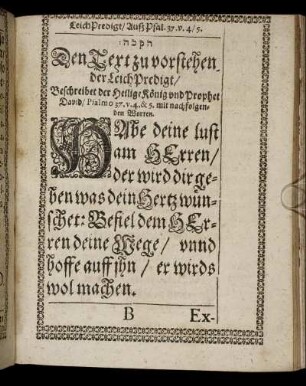 LeichPredigt / Auß Psal. 37. v. 4 / 5.
הקבה:
Den Text zu vorstehender LeichPredigt /
Beschreibet der Heilige König vnd Prophet
David / Psalmo 37. v. 4. & 5. mit nachfolgen-
den Worten.
HAbe deine lust
am HErren /
der wird dir ge-
ben was dein Hertz wün-
schet: Befiel dem HEr-
ren deine Wege / vnnd
hoffe auff jhn / er wirds
wol machen.
B
Ex-